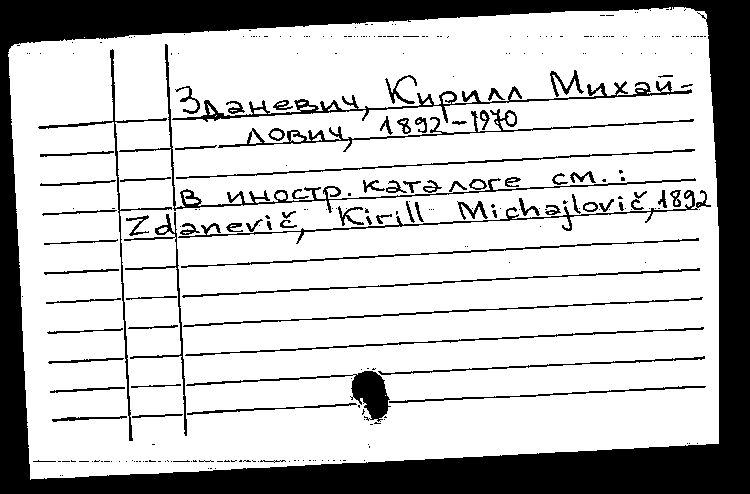 Зданевич, Кирилл Михай=
лович, 1892-1970
В иностр. каталоге см.:
Zdanevič, Kirill Michajlovič, 1892